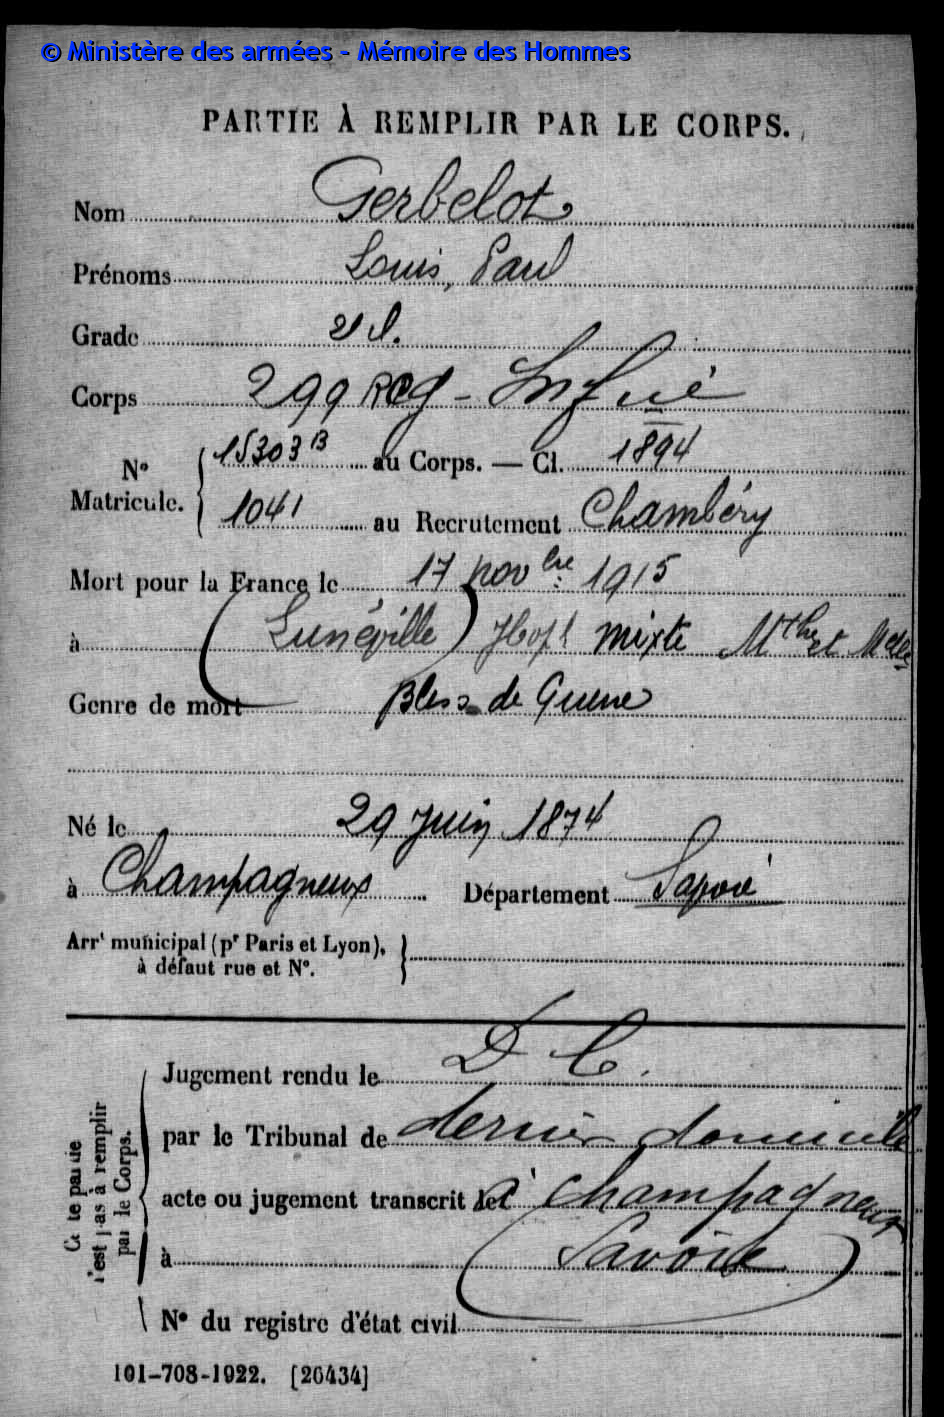 © Ministère des armées - Mémoire des Hommes
PARTIE À REMPLIR PAR LE CORPS.
Nom Gerbelot
Prénoms Louis, Paul
Grade 2e cl.
Corps 299 Reg - Infrie
No Matricule. 15303 B au Corps. — Cl. 1894
1041 au Recrutement Chambéry
Mort pour la France le 17 novbre 1915
à (Lunéville) Hopl mixte
Genre de mort Bless. de Guerre
Né le 29 Juin 1874
à Champagneux Département Savoie
Arrt municipal (pr Paris et Lyon),
à défaut rue et No.
Cette partie
n'est pas à remplir
par le Corps.
Jugement rendu le D C.
par le Tribunal de dernier domicile
acte ou jugement transcrit le à Champagneux
à (Savoie)
No du registre d'état civil
101-708-1922. [26434]